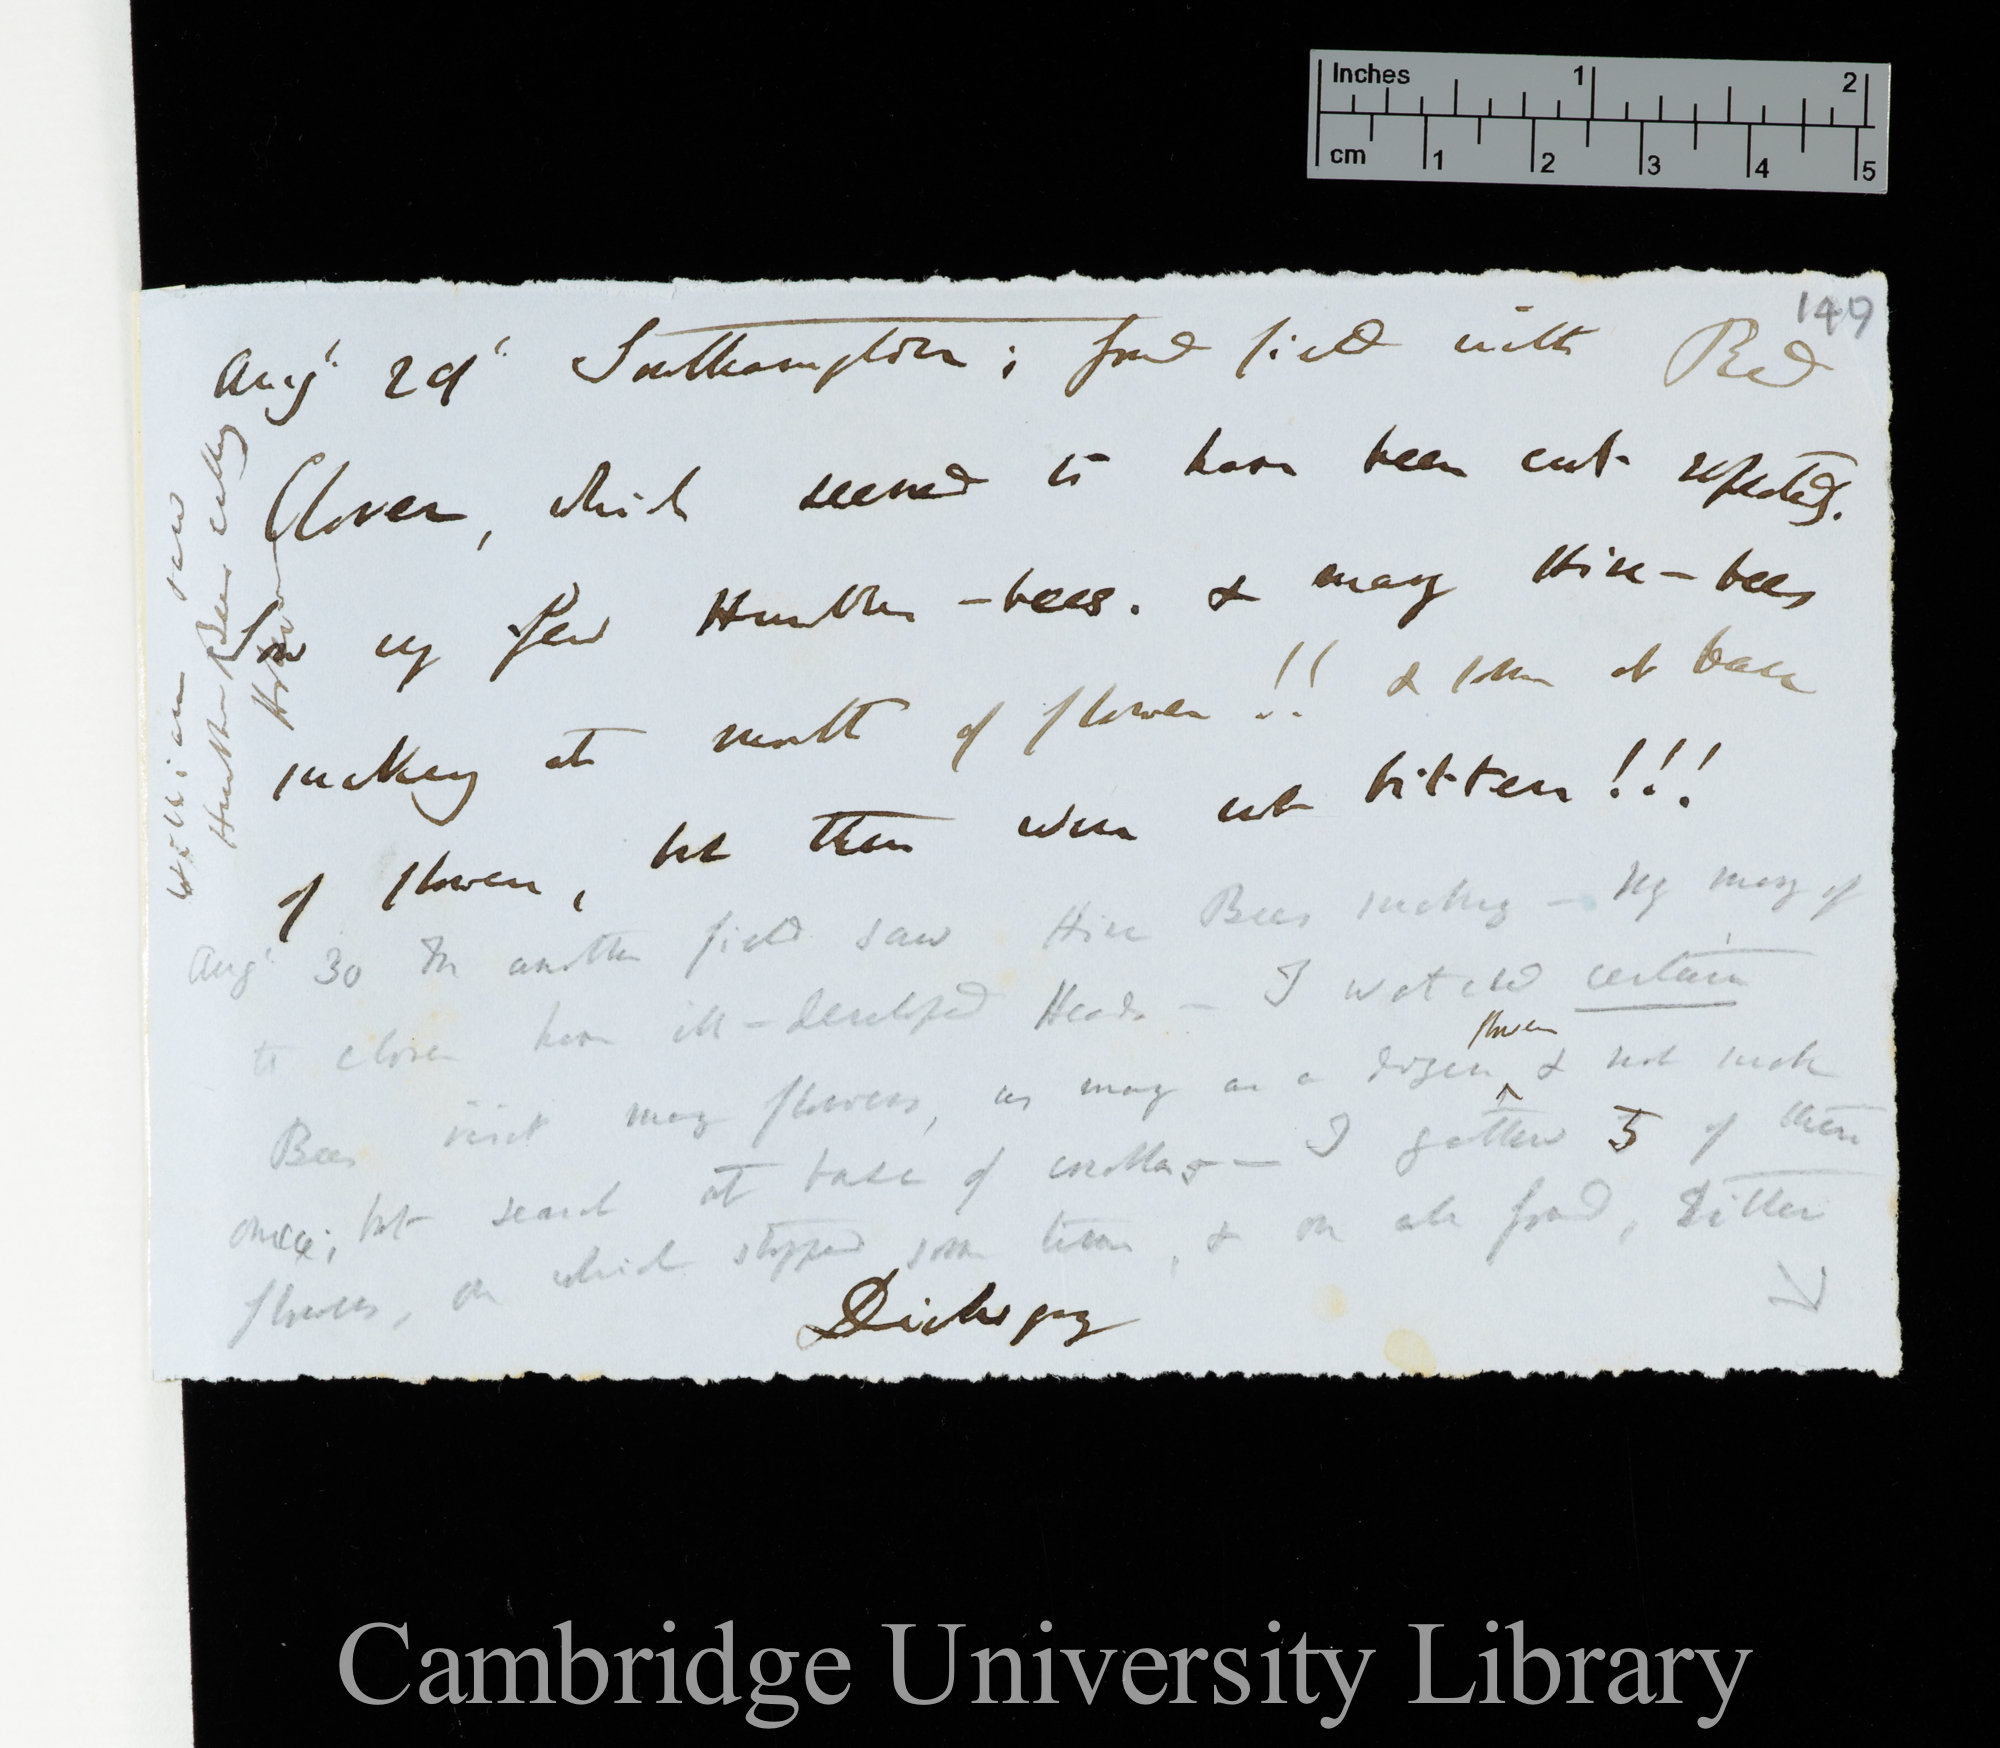 149
Augt. 29th. Southampton; found field with Red
Clover, which seemed to have been cut repeatedly.
Saw very few Humble-bees. & many Hive-bees
sucking at mouth of flower!! & some at base
of flower, but these were not bitten!!!
Augt. 30 In another field saw Hive Bees sucking — very many of
the clover have ill-developed Heads — I watched certain
Bees visit many flowers, as many as a dozen flowers & not suck
once; but search at base of corollas — I gathered 5 of these
flowers, on which stopped some time, & on all found, bitten
William saw
Humble Bees cutting
Holes
Inches 1 2
cm 1 2 3 4 5
Cambridge University Library